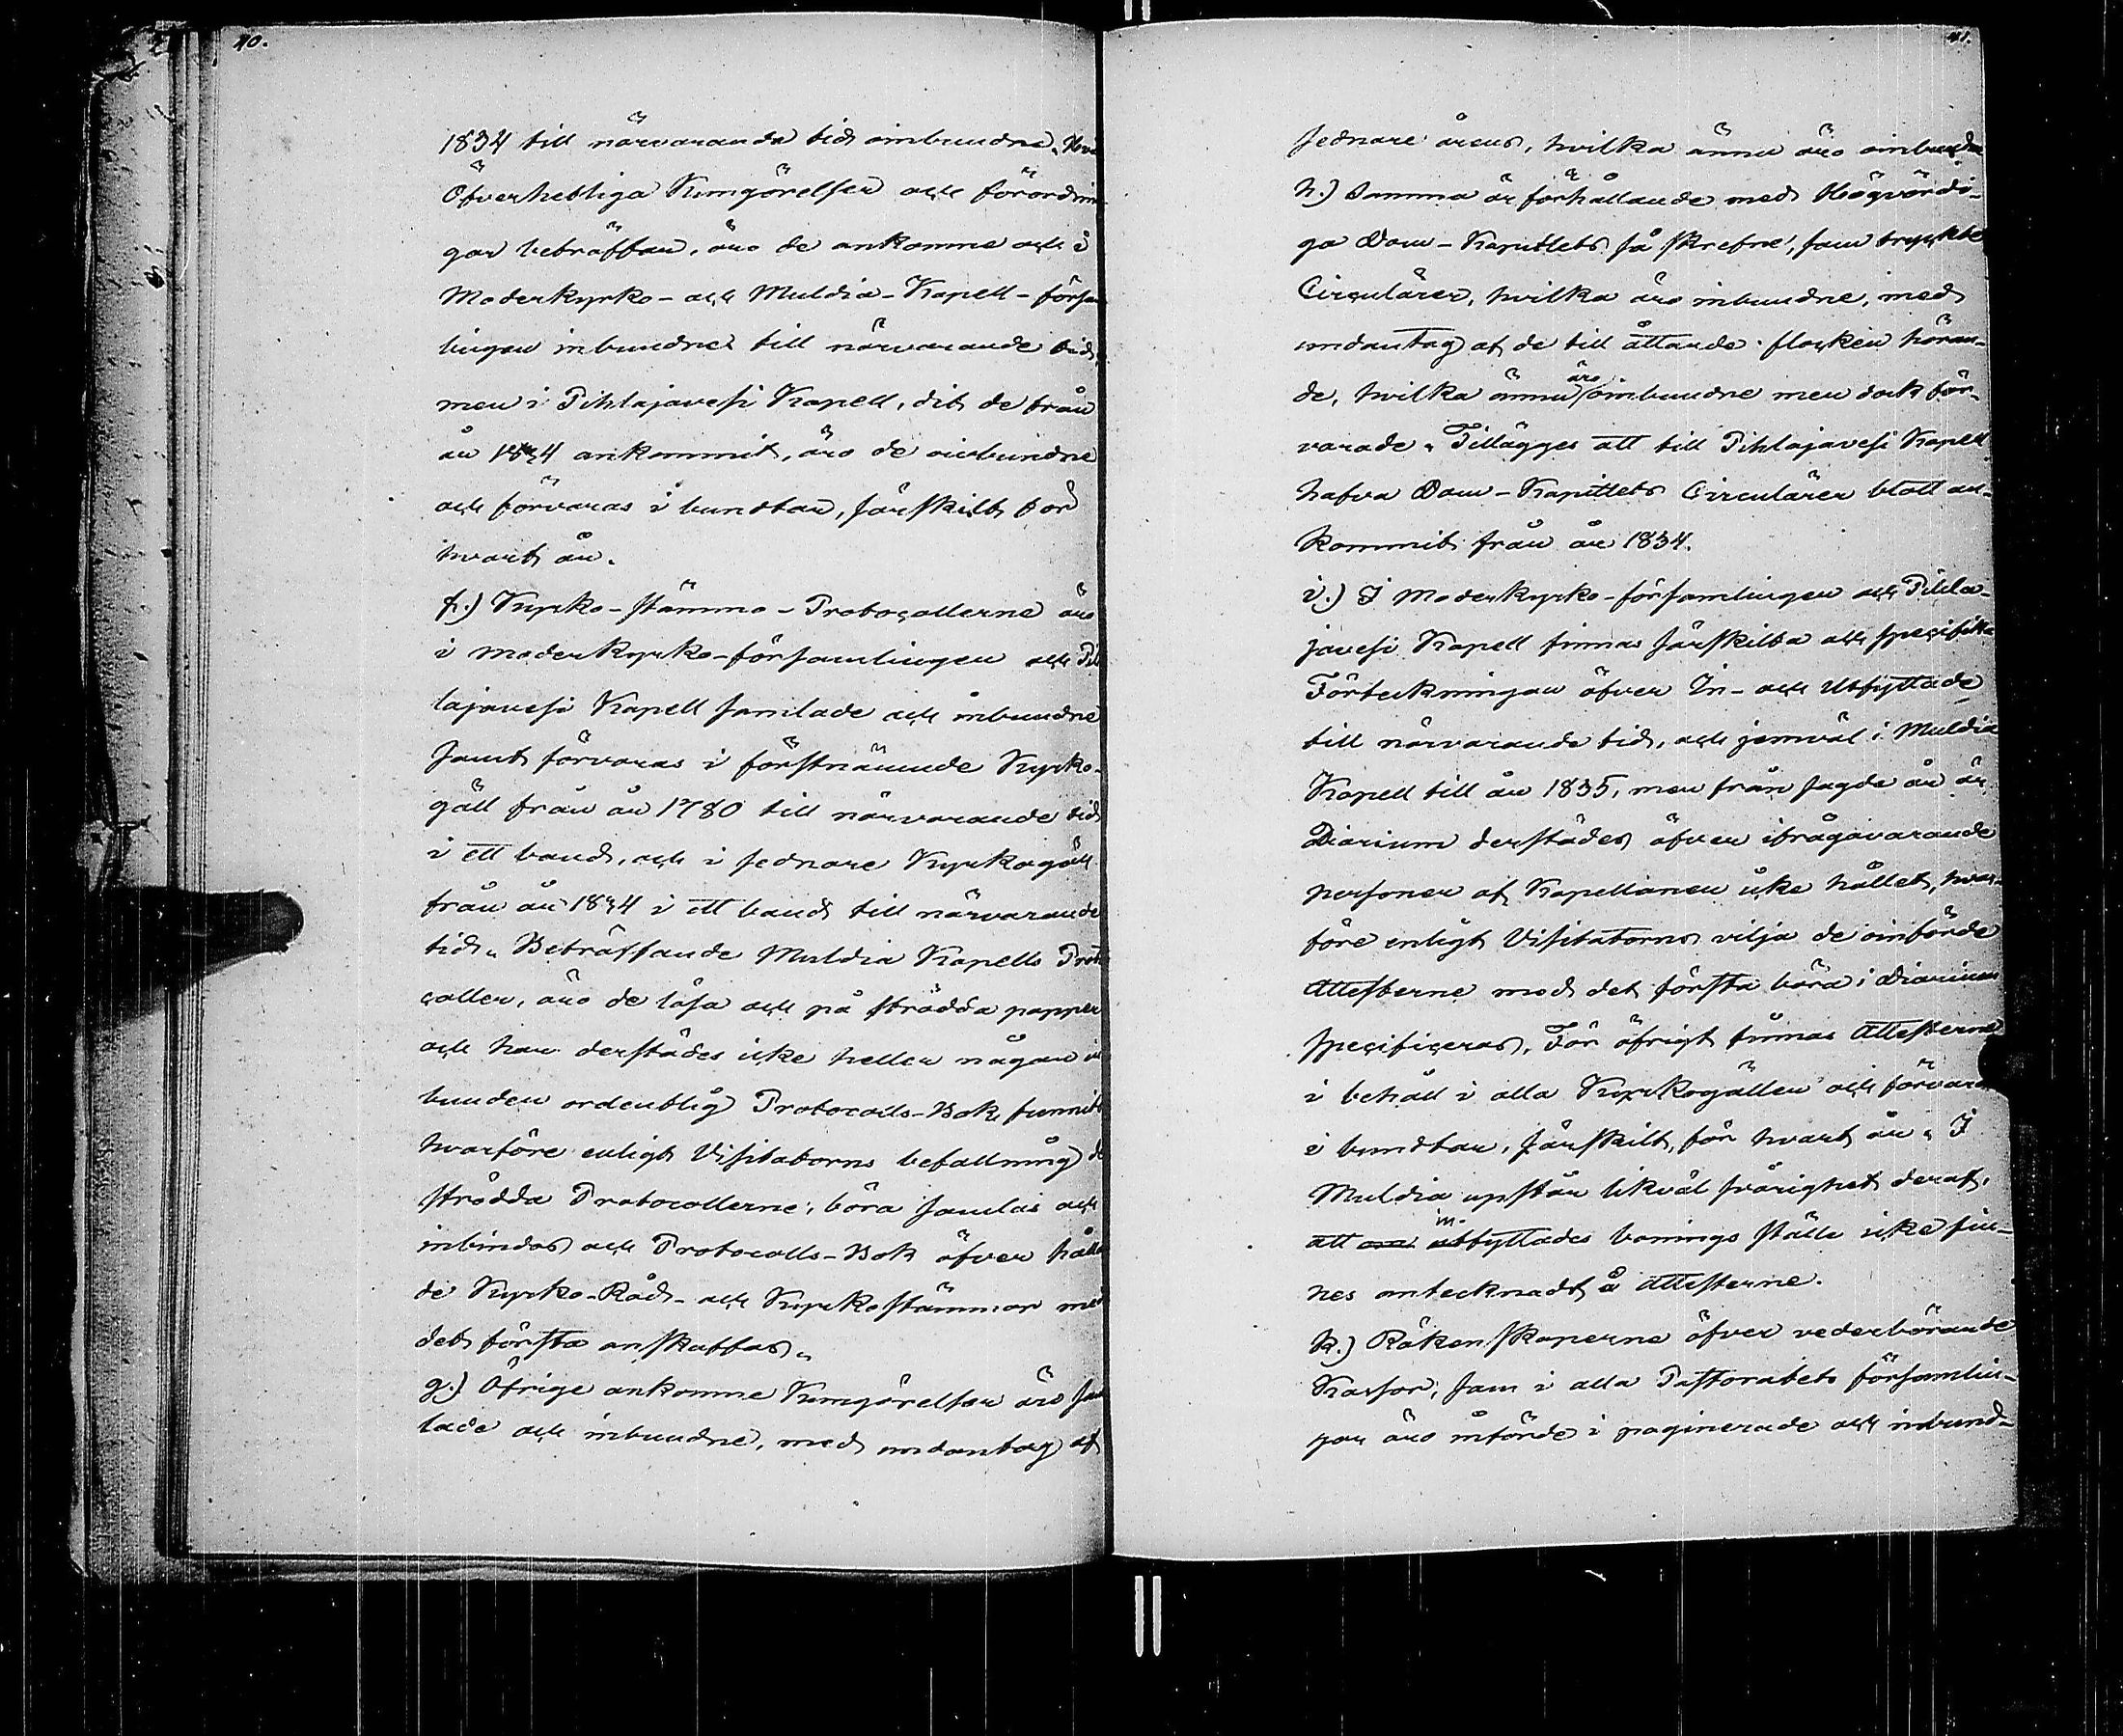 40.
1834 till närvarande tid oinbundne. Hvad
Öfverhetliga Kungörelser och förordnin-
gar beträffar, äro de ankomne och i
Moderkyrko- och Muldia-Kapell-försam
lingen inbundne till närvarande tid,
men i Pihlajavesi Kapell, dit de från
år 1834 ankommit, äro de oinbundne
och förvaras i bundtar, särskilt för
hvart år.
f.) Kyrko-stämmo-Protocollerne äro
i moderkyrko-församlingen och Pih
lajavesi Kapell samlade och inbundne
samt förvaras i förstnämnde Kyrko-
gäll från år 1780 till närvarande tid
i ett band, och i sednare Kyrkogäll
från år 1834 i ett band till närvarande
tid. Beträffande Muldia Kapells Proto
coller, äro de lösa och på strödda papper
och har derstädes icke heller någon in
bunden ordentlig Protocolls-Bok funnits
hvarföre enligt Visitatorns befallning de
strödda Protocollerne, böra samlas och
inbindas och Protocolls-Bok öfver håll
de Kyrko-Råd- och Kyrkostämmor med
det första anskaffas.
g.) Öfrige ankomne Kungörelser äro sam
lade och inbundne, med undantag af
41.
sednare årens, hvilka ännu äro oinbundne
h.) Samma är förhållande med Högvördi-
ga Dom-Kapitlets så skrefne, som tryckte
Circulärer, hvilka äro inbundne, med
undantag af de till åttande flocken höran-
de, hvilka ännu äro oinbundne men dock för-
varade. Tillägges att till Pihlajavesi Kapell
hafva Dom-Kapitlets Circulärer blott an-
kommit från år 1834.
i.) I Moderkyrko-församlingen och Pihla-
javesi Kapell finnas särskilta och specifika
Förteckningar öfver In- och Utflyttade
till närvarande tid, och jemväl i Muldia
Kapell till år 1835, men från sagde år är
Diarium derstädes öfver ifrågavarande
personer af Kapellanen icke hållet, hvar-
före enligt Visitatorns vilja de oinförde
Attesterne med det första böra i Diarium
specificeras. För öfrigt finnas Attesterne
i behåll i alla Kyrkogällen och förvaras
i bundtar, särskilt, för hvart år. I
Muldia uppstår likväl svårighet deraf,
att in- utflyttades bonings ställe icke fin-
nes antecknadt å Attesterne.
k.) Räkenskaperne öfver vederbörande
Kassor, som i alla Pastoratets församlin-
gar äro införde i paginerade och inbund-